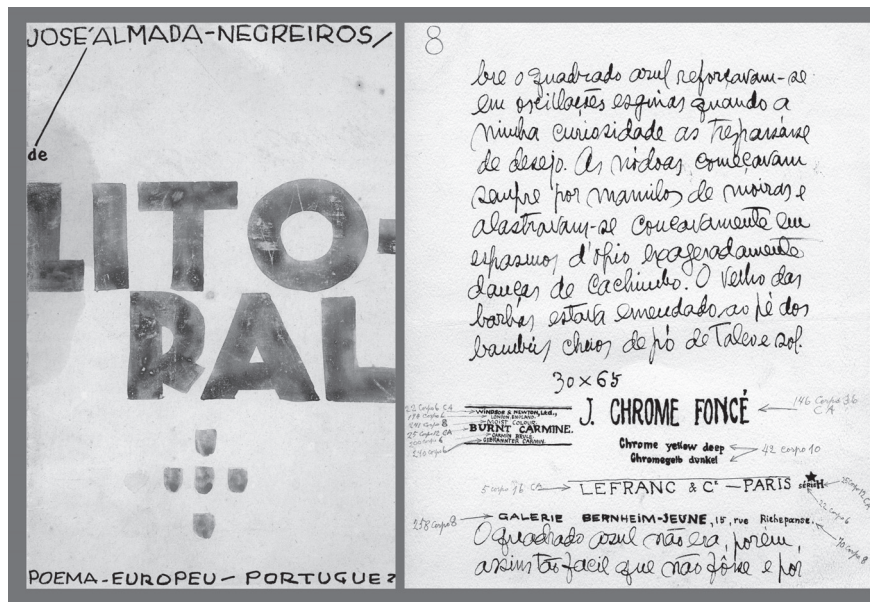 JOSÉ ALMADA-NEGREIROS/
de
LITO-
RAL
POEMA-EUROPEU-PORTUGUEZ
8
bre o quadrado azul reforçavam-se
em oscillações esguias quando a
minha curiosidade as
de desejo. As nódoas começavam
sempre por mamilos de moiras e
alastravam-se concavamente em
espasmos d'opio exageradamente
danças de cachimbo. O velho das
barbas estava emendado ao pé dos
cheios de pó de talco e sol.
30×65
22 Corpo 6 CA
WINDSOR & NEWTON, Ltd.,
LONDON, ENGLAND.
MOIST COLOUR.
BURNT CARMINE.
25 Corpo 12 CA
CARMIN BRULÉ.
GEBRANNTER CARMIN.
240 corpo 6
J. CHROME FONCÉ
146 Corpo 36
CA
Chrome yellow deep
Chromegelb dunkel
42 corpo 10
5 corpo 16 CA
LEFRANC & Cᴱ — PARIS
SÉRIE H
258 Corpo 8
GALERIE BERNHEIM-JEUNE, 15, rue Richepanse.
O quadrado azul não era, porém,
assim tão facil que não fôsse e por